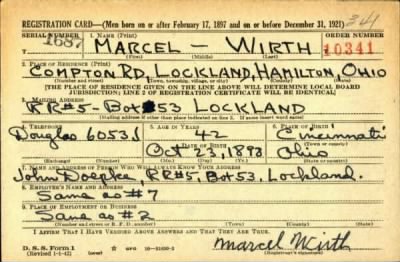 REGISTRATION CARD—(Men born on or after February 17, 1897 and on or before December 31, 1921)
SERIAL NUMBER 1. NAME (Print) ORDER NUMBER
1687 MARCEL — WIRTH 10341
(First) (Middle) (Last)
2. PLACE OF RESIDENCE (Print)
COMPTON RD. LOCKLAND, HAMILTON, OHIO
(Number and street) (Town, township, village, or city) (County) (State)
[THE PLACE OF RESIDENCE GIVEN ON THE LINE ABOVE WILL DETERMINE LOCAL BOARD
JURISDICTION; LINE 2 OF REGISTRATION CERTIFICATE WILL BE IDENTICAL]
3. MAILING ADDRESS
RR#5-Box 53 LOCKLAND
[Mailing address if other than place indicated on line 2. If same insert word same]
4. TELEPHONE 5. AGE IN YEARS 6. PLACE OF BIRTH
Douglas 6053J 42 Cincinnati
DATE OF BIRTH (Town or county)
Oct 23, Ohio
(Exchange) (Number) (Mo.) (Day) (Yr.) (State or country)
7. NAME AND ADDRESS OF PERSON WHO WILL ALWAYS KNOW YOUR ADDRESS
John Doepke, RR#5, Box 53, Lockland.
8. EMPLOYER'S NAME AND ADDRESS
Same as #7
9. PLACE OF EMPLOYMENT OR BUSINESS
Same as #2
(Number and street or R. F. D. number) (Town) (County) (State)
I AFFIRM THAT I HAVE VERIFIED ABOVE ANSWERS AND THAT THEY ARE TRUE.
D. S. S. Form 1
(Revised 1-1-42) GPO Marcel Wirth
(Registrant's signature)